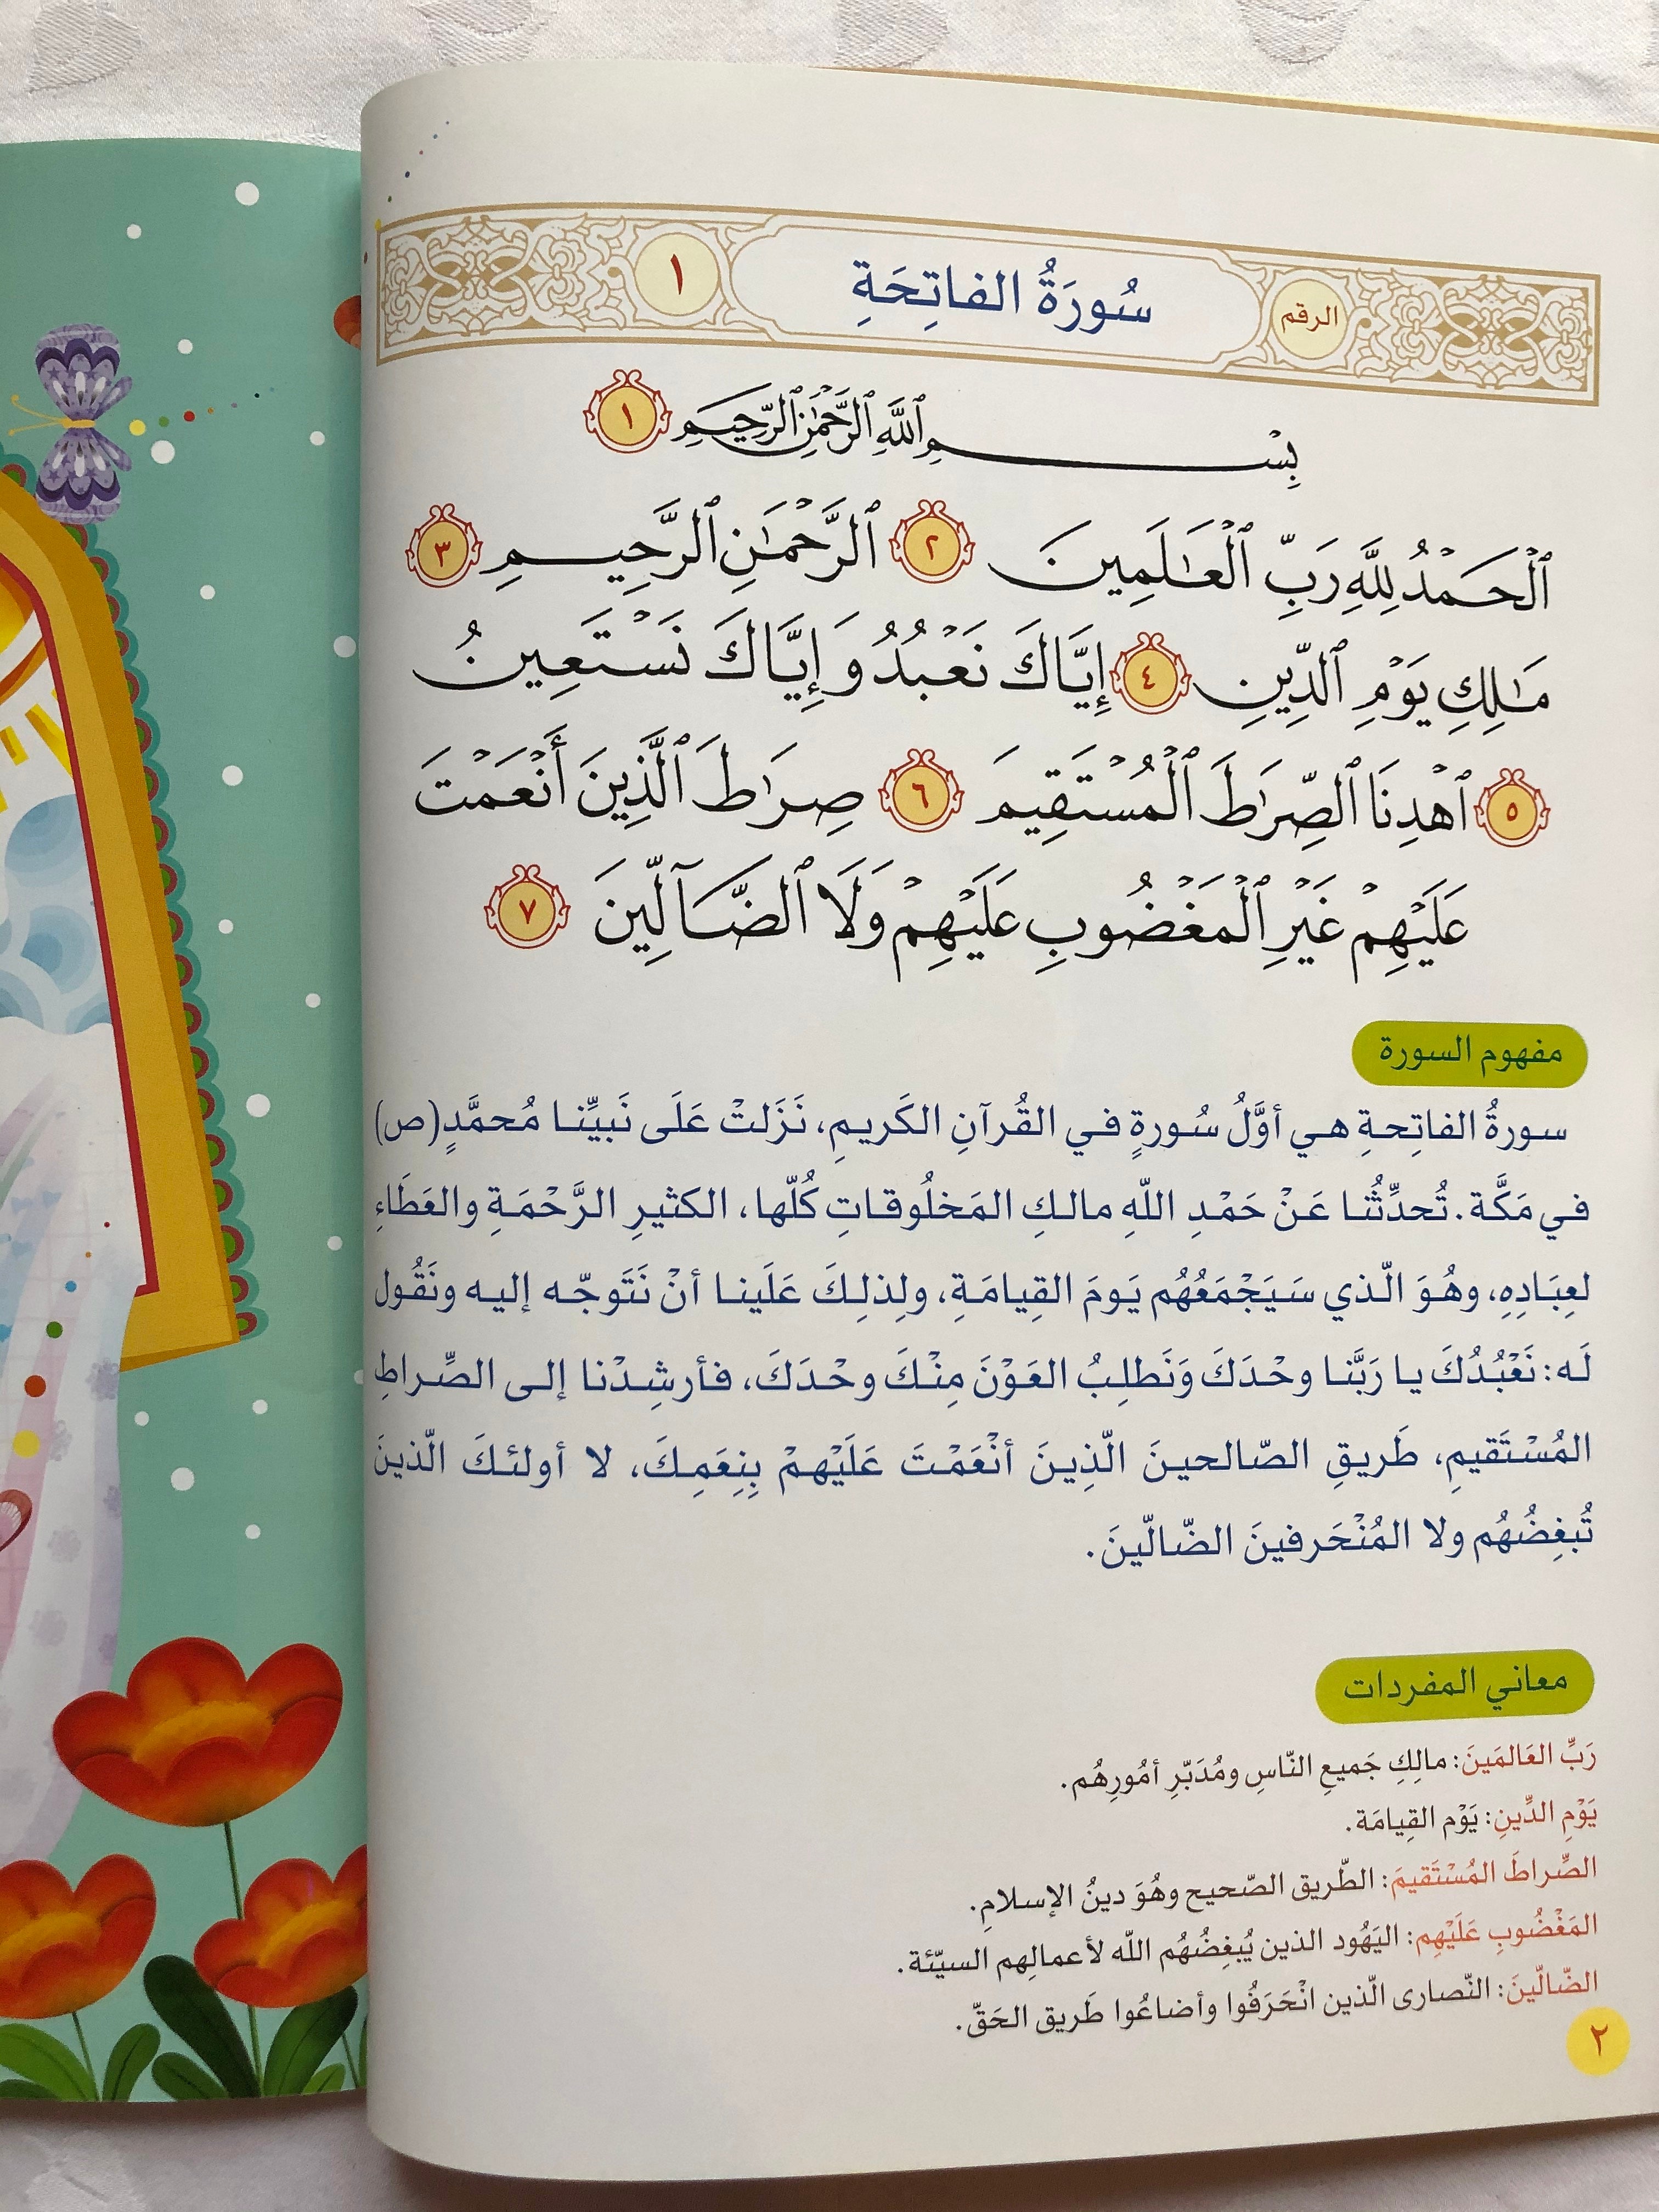 الرقم
سُورَةُ الفاتِحَةِ
١
بِسْمِ ٱللَّهِ ٱلرَّحْمَٰنِ ٱلرَّحِيمِ ١
ٱلْحَمْدُ لِلَّهِ رَبِّ ٱلْعَٰلَمِينَ ٢ ٱلرَّحْمَٰنِ ٱلرَّحِيمِ ٣
مَٰلِكِ يَوْمِ ٱلدِّينِ ٤ إِيَّاكَ نَعْبُدُ وَإِيَّاكَ نَسْتَعِينُ
٥ ٱهْدِنَا ٱلصِّرَٰطَ ٱلْمُسْتَقِيمَ ٦ صِرَٰطَ ٱلَّذِينَ أَنْعَمْتَ
عَلَيْهِمْ غَيْرِ ٱلْمَغْضُوبِ عَلَيْهِمْ وَلَا ٱلضَّآلِّينَ ٧
مفهوم السورة
سورةُ الفاتِحةِ هي أوَّلُ سُورةٍ في القُرآنِ الكَريمِ، نَزَلتْ عَلَى نَبيِّنا مُحمَّدٍ (ص)
في مَكَّة. تُحدِّثُنا عَنْ حَمْدِ اللّهِ مالكِ المَخلُوقاتِ كُلّها، الكثيرِ الرَّحْمَةِ والعَطَاءِ
لعِبَادِهِ، وهُوَ الّذي سَيَجْمَعُهُم يَومَ القِيامَةِ، ولِذلِكَ عَلَينا أنْ نَتَوجّه إليه ونَقُول
لَه: نَعْبُدُكَ يا رَبَّنا وحْدَكَ وَنَطلِبُ العَوْنَ مِنْكَ وحْدَكَ، فأرشِدْنا إلى الصِّراطِ
المُسْتَقيمِ، طَريقِ الصّالحينَ الّذِينَ أنْعَمْتَ عَلَيْهمْ بِنِعَمِكَ، لا أولئكَ الّذينَ
تُبغِضُهُم ولا المُنْحَرفينَ الضّالّينَ.
معاني المفردات
رَبِّ العَالمَينَ: مالِكِ جَميعِ النّاسِ ومُدَبّرِ أمُورِهُم.
يَوْمِ الدِّينِ: يَوْم القِيامَة.
الصِّراطَ المُسْتَقيمَ: الطّريق الصّحيح وهُوَ دينُ الإسلامِ.
المَغْضُوبِ عَلَيْهِم: اليَهُود الذين يُبغِضُهُم اللّه لأعمالِهم السيّئة.
الضّالّينَ: النّصارى الّذين انْحَرَفُوا وأضاعُوا طَريق الحَقّ.
٢